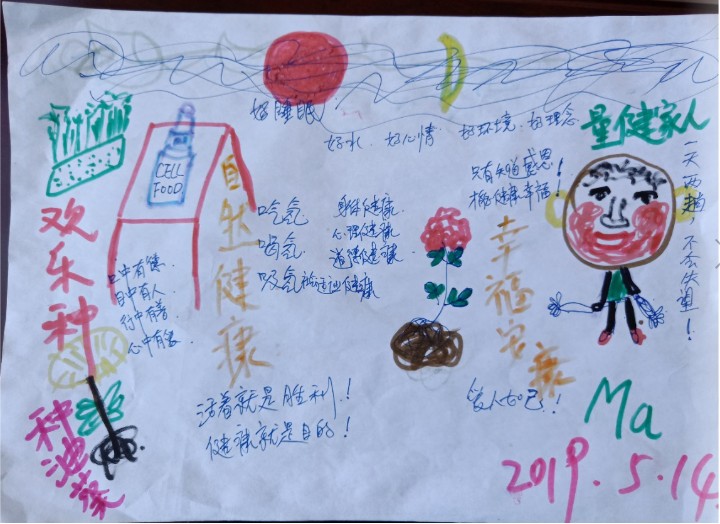 好睡眠
好水、好心情
好环境、好理念
量健家人
CELL
FOOD
欢乐种
种油菜
自然健康
口中有德
目中有人
行中有善
心中有爱
吃氢
喝氢
吸氢
身体健康
心理健康
道德健康
健康
只有知道感恩
健康幸福!
幸福安康
一天两趟,不会失望!
活着就是胜利!
健康就是目的!
爱人如己!
Ma
2019.5.14